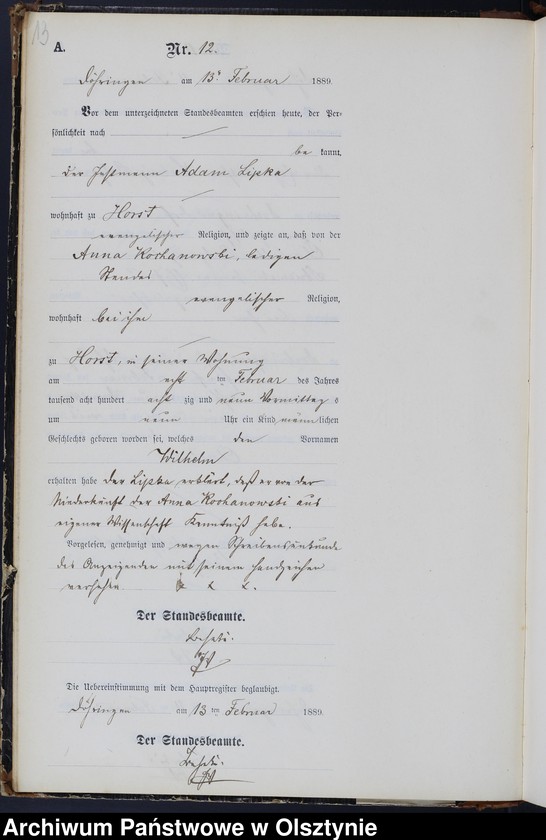 13
A. Nr. 12.
Döhringen am 13ten Februar 1889.
Vor dem unterzeichneten Standesbeamten erschien heute, der Per-
sönlichkeit nach
be kannt,
der Instmann Adam Lipka
wohnhaft zu Horst
evangelischer Religion, und zeigte an, daß von der
Anna Kochanowski, ledigen
Standes
evangelischer Religion,
wohnhaft bei ihm
zu Horst, in seiner Wohnung
am acht ten Februar des Jahres
tausend acht hundert acht zig und neun Vormittags
um neun Uhr ein Kind männlichen
Geschlechts geboren worden sei, welches den Vornamen
Wilhelm
erhalten habe der Lipka erklärt, daß er von der
Niederkunft der Anna Kochanowski aus
eigener Wissenschaft Kenntniß habe.
Vorgelesen, genehmigt und wegen Schreibensunkunde
des Anzeigenden mit seinem Handzeichen
versehen x x x.
Der Standesbeamte.
Die Uebereinstimmung mit dem Hauptregister beglaubigt.
Döhringen am 13 ten Februar 1889.
Der Standesbeamte.
Archiwum Państwowe w Olsztynie